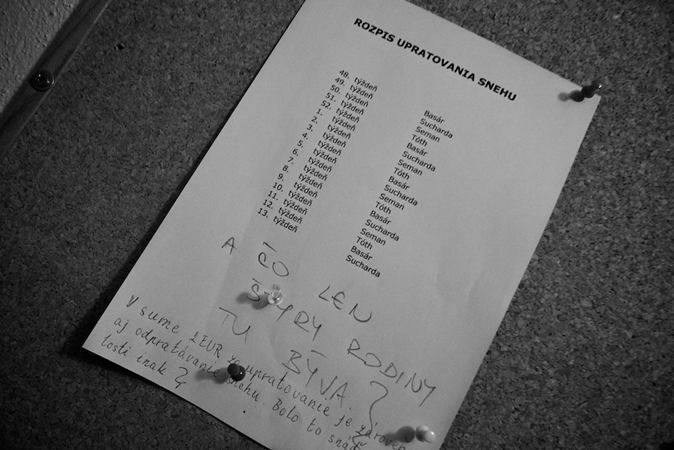 ROZPIS UPRATOVANIA SNEHU
48. týždeň Basár
49. týždeň Sucharda
50. týždeň Seman
51. týždeň Tóth
52. týždeň Basár
1. týždeň Sucharda
2. týždeň Seman
3. týždeň Tóth
4. týždeň Basár
5. týždeň Sucharda
6. týždeň Seman
7. týždeň Tóth
8. týždeň Basár
9. týždeň Sucharda
10. týždeň Seman
11. týždeň Tóth
12. týždeň Basár
13. týždeň Sucharda
A ČO LEN
ŠTYRY RODINY
TU BÝVA ?
V sume 1EUR za upratovanie je zároveň
aj odpratávanie snehu. Bolo to snáď
losti inak ?